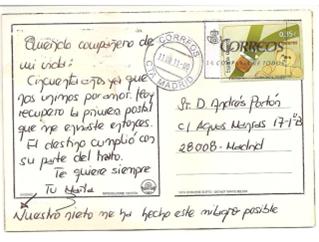 Querido compañero de
mi vida:
Cincuenta años ya que
nos unimos por amor. Hoy
recupero la primera postal
que me enviaste entonces.
El destino cumplió con
su parte del trato.
Te quiere siempre
Tu María
Nuestro nieto me ha hecho este milagro posible
CORREOS
MADRID
0,35€
CORREOS
Sr. D. Andrés Portón
C/ Aguas Mansas 17-1ºB
28008-Madrid